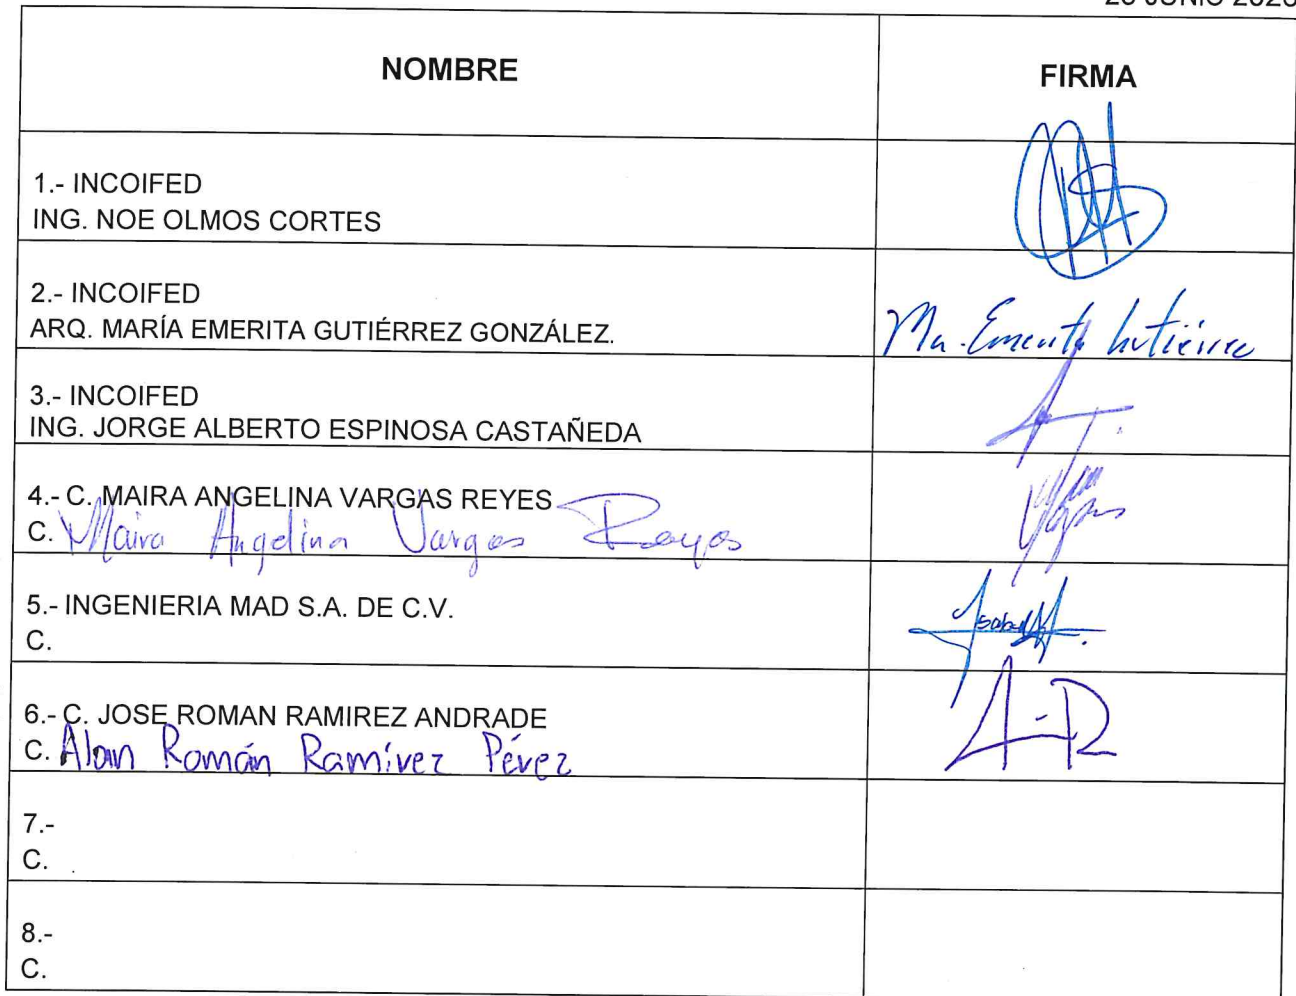 JUNIO
NOMBRE
FIRMA
1.- INCOIFED
ING. NOE OLMOS CORTES
2.- INCOIFED
ARQ. MARÍA EMERITA GUTIÉRREZ GONZÁLEZ.
Ma. Emerita Gutiérrez
3.- INCOIFED
ING. JORGE ALBERTO ESPINOSA CASTAÑEDA
4.- C. MAIRA ANGELINA VARGAS REYES
C. Maira Angelina Vargas Reyes
5.- INGENIERIA MAD S.A. DE C.V.
C.
6.- C. JOSE ROMAN RAMIREZ ANDRADE
C. Alan Román Ramírez Pérez
7.-
C.
8.-
C.